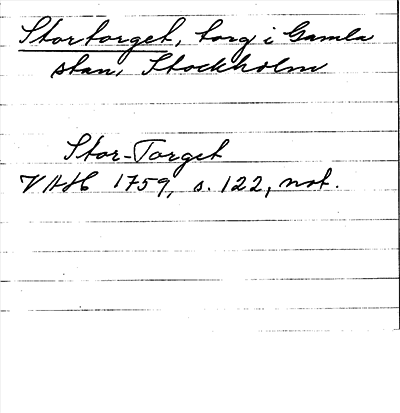 Stortorget, torg i Gamla
stan, Stockholm
Stor-Torget
VAH 1759, s. 122, not.